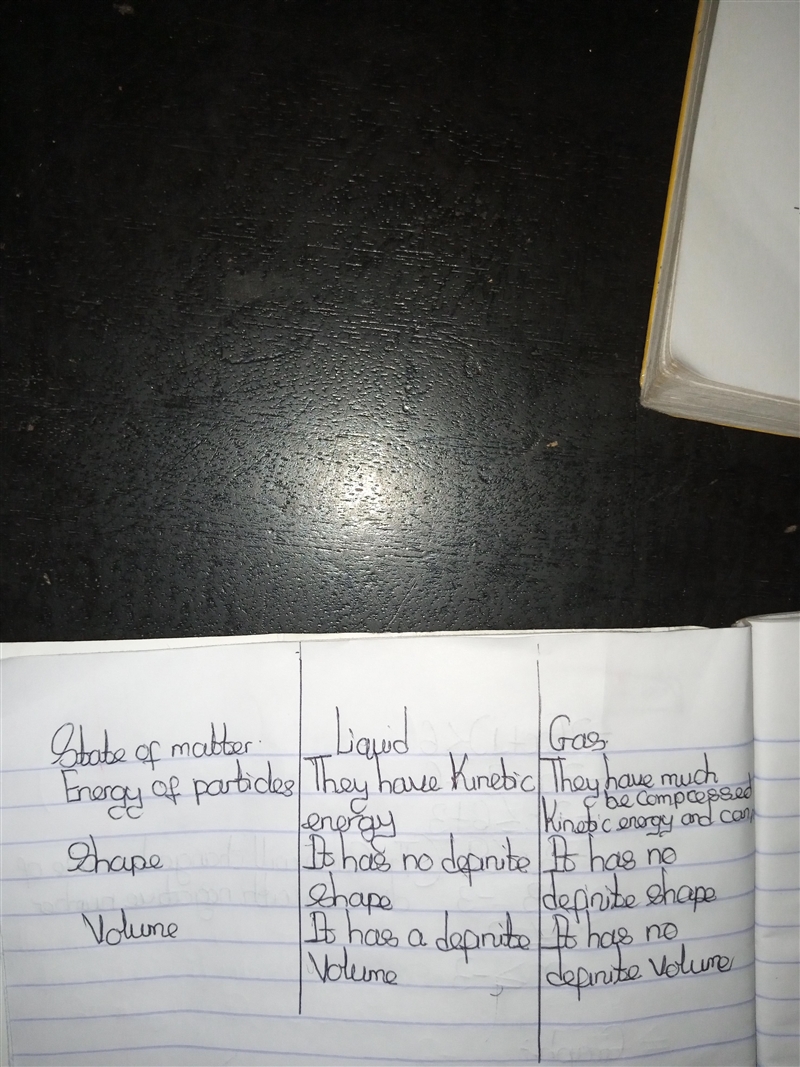 State of matter. Liquid Gas
Energy of particles They have Kinetic They have much
energy Kinetic energy and can be compressed
Shape It has no definite It has no
shape definite shape
Volume It has a definite It has no
Volume definite Volume